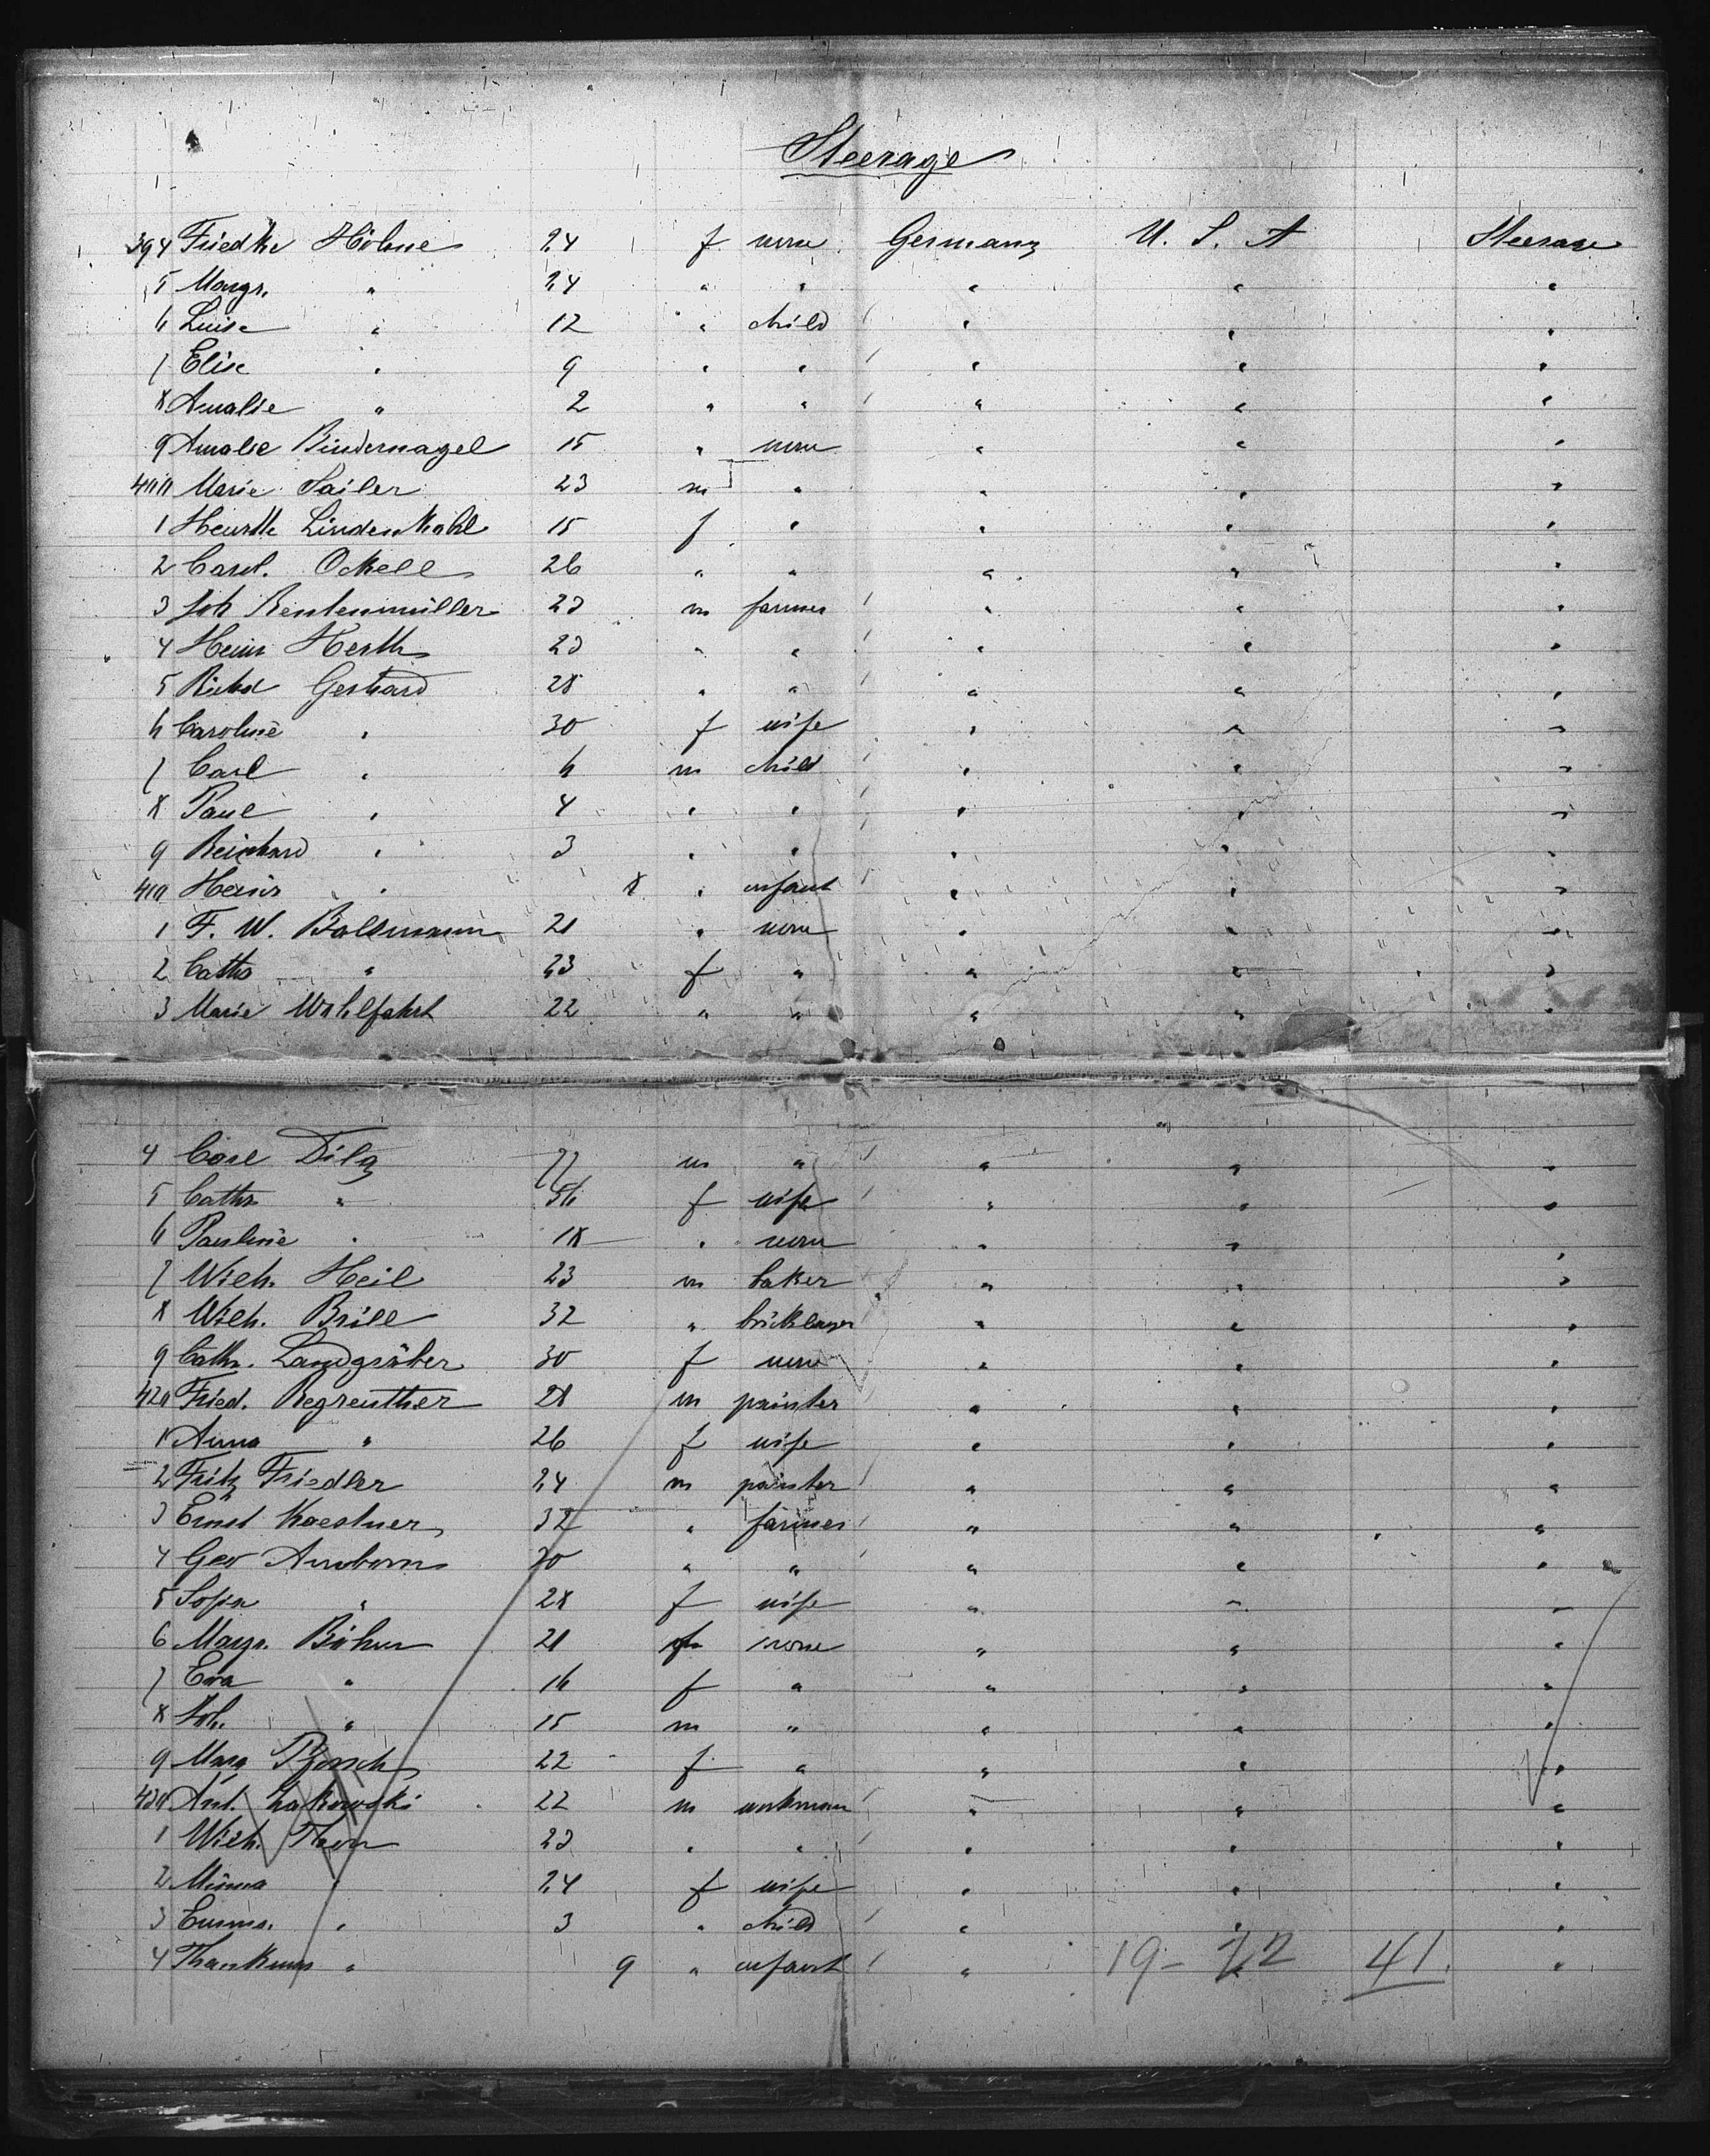 Steerage
394 Friedke Höhne 24 f none Germany U. S. A Steerage
5 Margr. " 24 " " " " "
6 Luise " 12 " child " " "
7 Elise " 9 " " " " "
8 Amalie " 2 " " " " "
9 Amalie Bindernagel 15 " none " " "
400 Marie Sailer 23 m " " " "
1 Lindenkohl 15 f " " " "
2 Carol. Ockell 26 " " " " "
3 Joh Rentenmüller 23 m farmer " " "
4 Heinr Herth 23 " " " " "
5 Richd Gerhard 28 " " " " "
6 Caroline " 30 f wife " " "
7 Carl " 6 m child " " "
8 Paul " 4 " " " " "
9 Reinhard " 3 " " " " "
410 Heinr " 8 " infant " " "
1 F. W. Baltmann 21 " none " " "
2 Catha " 23 f " " " "
3 Marie Wohlfahrt 22 " " " " "
4 Carl Dilg m " " " "
5 Cathr " 56 f wife " " "
6 Pauline " 18 " none " " "
7 Wilh. Heil 23 m baker " " "
8 Wilh. Brill 32 " bricklayer " " "
9 Cathr. Landgräber 30 f none " " "
420 Fried. Regreuther 28 m painter " " "
1 Anna " 26 f wife " " "
2 Fritz Friedler 24 m painter " " "
3 Ernst Kaestner 32 " farmer " " "
4 Geo Amborn 30 " " " " "
5 Sofia " 28 f wife " " "
6 Margr. Böhm 21 f none " " "
7 Eva " 16 f " " " "
8 Joh. " 15 m " " " "
9 Marg 22 f " " " "
430 Ant. Lakowski 22 m workman " " "
1 Wilh. Thom 23 " " " " "
2 Minna " 24 f wife " " "
3 Emma. " 3 " child " " "
4 " 9 " infant " "
19 - 22 41.